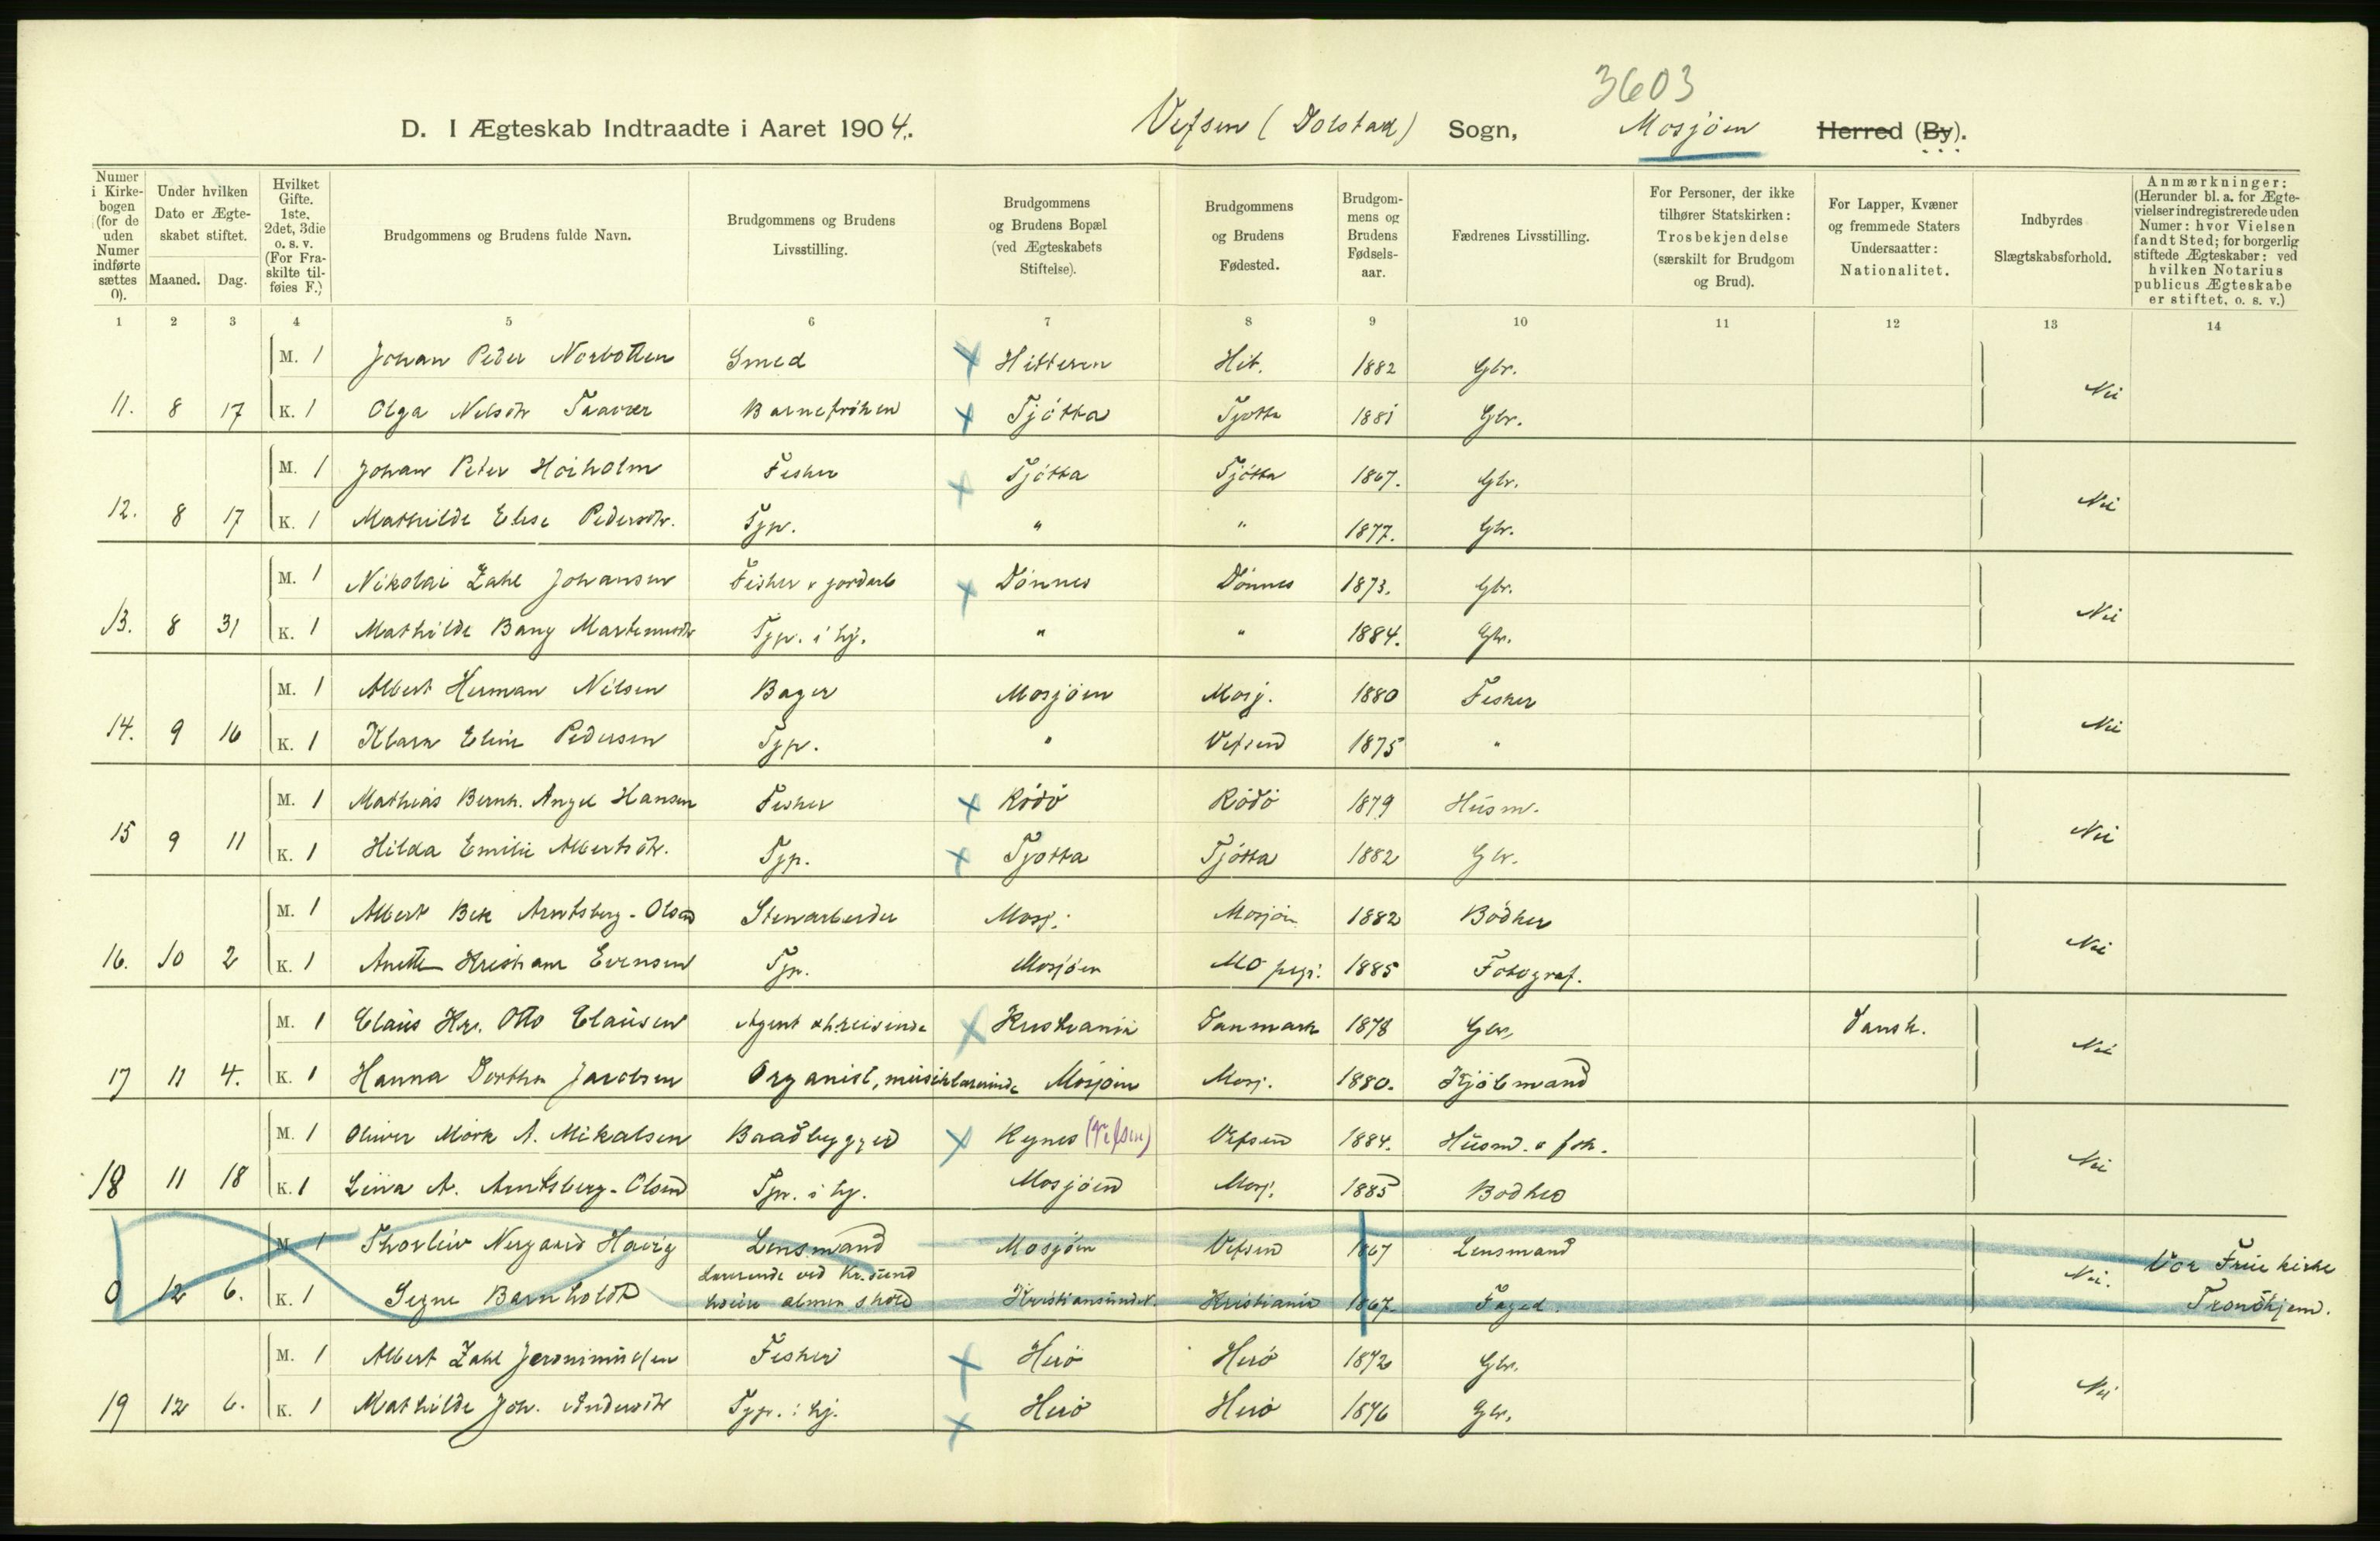 3603
D. I Ægteskab Indtraadte i Aaret 1904. Vefsen (Dolstad) Sogn, Mosjøen Herred (By).
Numer i Kirkebogen (for de uden Numer indførte sættes 0).
Under hvilken Dato er Ægteskabet stiftet.
Maaned. Dag.
Hvilket Gifte. 1ste, 2det, 3die o. s. v. (For Fraskilte tilføies F.)
Brudgommens og Brudens fulde Navn.
Brudgommens og Brudens Livsstilling.
Brudgommens og Brudens Bopæl (ved Ægteskabets Stiftelse).
Brudgommens og Brudens Fødested.
Brudgommens og Brudens Fødselsaar.
Fædrenes Livsstilling.
For Personer, der ikke tilhører Statskirken: Trosbekjendelse (særskilt for Brudgom og Brud).
For Lapper, Kvæner og fremmede Staters Undersaatter: Nationalitet.
Indbyrdes Slægtskabsforhold.
Anmærkninger: (Herunder bl. a. for Ægtevielser indregistrerede uden Numer: hvor Vielsen fandt Sted; for borgerlig stiftede Ægteskaber: ved hvilken Notarius publicus Ægteskabe er stiftet, o. s. v.)
1 2 3 4 5 6 7 8 9 10 11 12 13 14
M. 1 Johan Peder Norbotten Smed Hitteren Hit. 1882 Gbr.
11. 8 17 K. 1 Olga Nelsdtr Barnefröken Tjötta Tjotta 1881 Gbr. Nei
M. 1 Johan Peter Höiholm Fisker Tjötta Tjötta 1867. Gbr.
12. 8 17 K. 1 Mathilde Elise Pedersdtr. Tjp. " " 1877. Gbr. Nei
M. 1 Nikolai Zahl Johansen Fisker & jordarb Dönnes Dönnes 1873. Gbr.
13. 8 31 K. 1 Mathilde Bang Martinusdtr Tjp. i hj. " " 1884. Gbr. Nei
M. 1 Albert Herman Nilsen Bager Mosjöen Mosj. 1880 Fisker
14. 9 16 K. 1 Klara Eline Pedersen Tjp. " Vefsen 1875 " Nei
M. 1 Mathias Bernh. Angel Hansen Fisker Rödö Rödö 1879 Husm.
15 9 11 K. 1 Hilda Emilie Albertsdtr. Tjp. Tjotta Tjötta 1882 Gbr. Nei
M. 1 Albert Bek Arntsberg-Olsen Stenarbeider Mosj. Mosjöen 1882 Bödker
16. 10 2 K. 1 Anette Kristiane Evensen Tjp. Mosjöen Mo 1885 Fotograf. Nei
M. 1 Claus Kr. Otto Clausen Agent Kristiania Danmark 1878 Gbr. Dansk.
17 11 4. K. 1 Hanna Dorthea Jacobsen Organist, musiklærerinde Mosjöen Mosj. 1880. Kjöbmand Nei
M. 1 Oliver Mork A. Mikalsen Baadbygger Kynes (Vefsen) Vefsen 1884. Husm. & fisk.
18 11 18 K. 1 Lina A. Arntsberg-Olsen Tjp. i hj. Mosjöen Mosj. 1885 Bodker Nei
M. 1 Thorleiv Nergaard Havig Lensmand Mosjöen Vefsen 1867 Lensmand
0 12 6. K. 1 Signe Barnholdt Lærerinde ved Kr.sund höiere almen skole Kristiansund N. Kristiania 1867. Foged. Nei. Vor Frue kirke Trondhjem.
M. 1 Albert Zahl Jeronimussen Fisker Herö Herö 1872 Gbr.
19 12 6. K. 1 Mathilde Joh. Andersdtr Tjp. i hj. Herö Herö 1876 Gbr. Nei